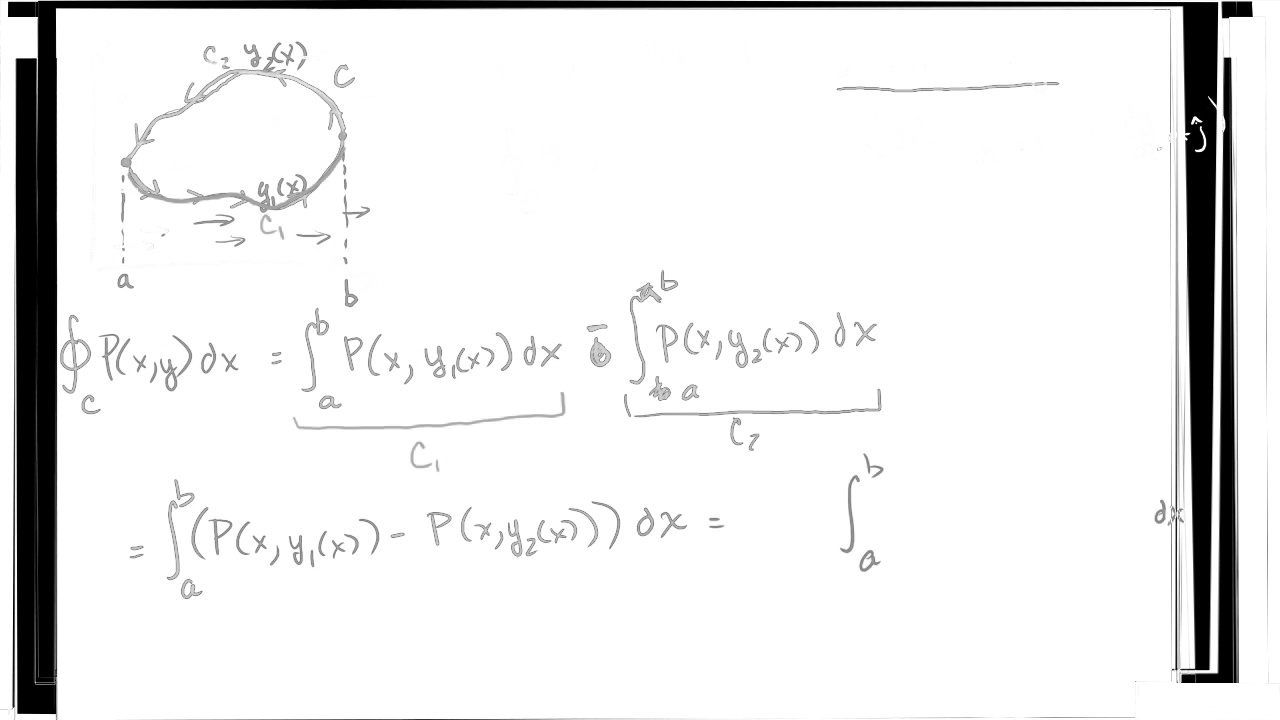 C₂ y₂(x) C
+ ĵ )
y₁(x)
C₁
a b
∮_C P(x,y) dx = ∫_a^b P(x, y₁(x)) dx - ∫_a^b P(x, y₂(x)) dx
C₁ C₂
= ∫_a^b (P(x, y₁(x)) - P(x, y₂(x))) dx = ∫_a^b dx